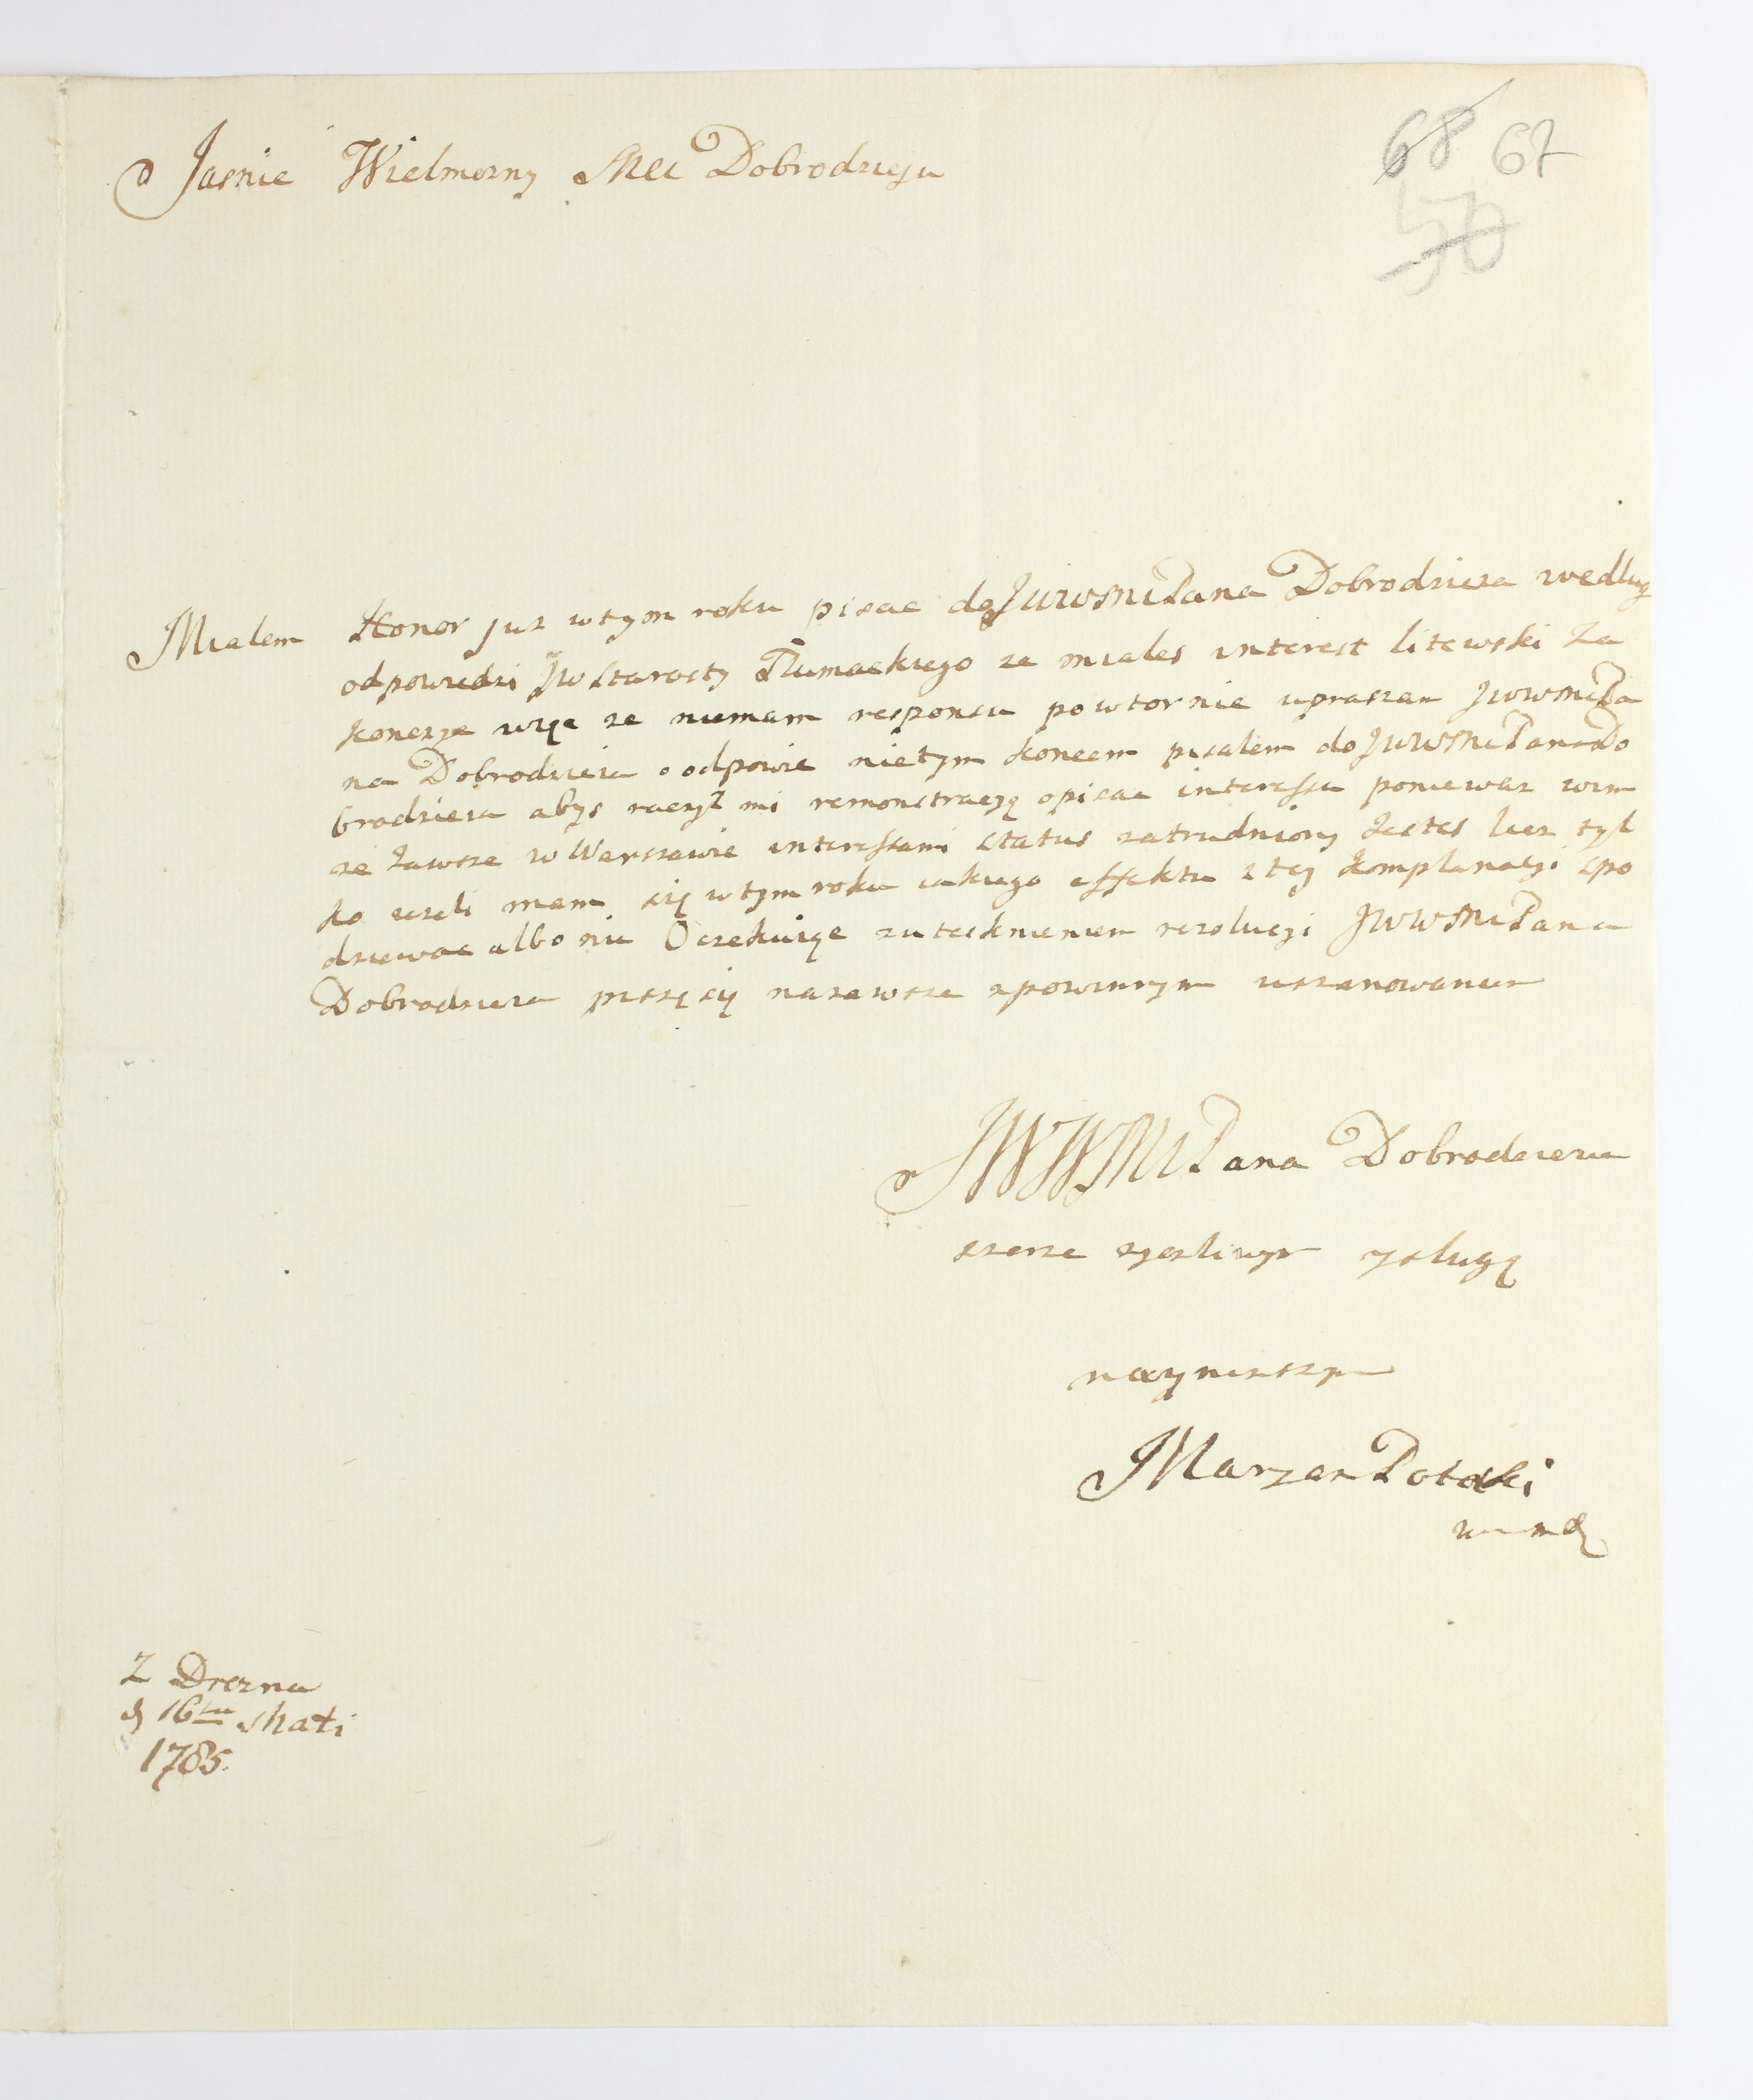 68 67
50
Jasnie Wielmozny Mci Dobrodzieju
Mialem Honor juz w tym roku pisac do JWWMCPana Dobrodzieia wedlug
odpowiedzi JW Starosty Tlumackiego ze miales interest litewski za
konczyc więc ze niemam responsu powtornie upraszam JWWMCPa
na Dobrodzieia o odpowie nietym koncem pisalem do JWWMCPana Do
brodzieia abys raczył mi remonstracyą opisac interessu poniewaz wim
ze zawsze w Warszawie interessami status zatrudniony Jestes lecz tyl
ko iezeli mam się w tym roku iakiego effektu z tey komplanacyi spo
dziewac albo nie Oczekuięc z uteschnieniem rezolucyi JWWMCPana
Dobrodzieia piszę się nazawsze z powinnym uszanowaniem
JWWMCPana Dobrodzieia
szerze zyczliwym y slugą
nayniszszym
Maryan Potocki
Z Drezna
d 16ta Maii
1785.